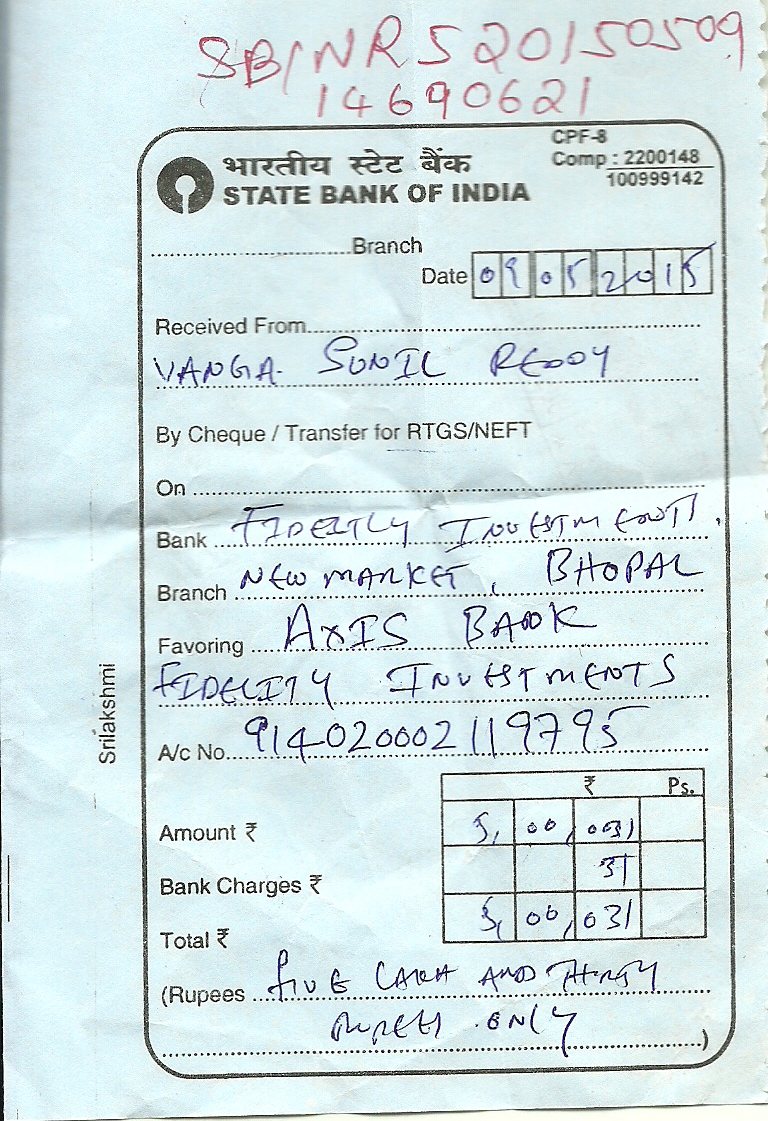 SBINR520150509
14690621
CPF-8
Comp : 2200148
100999142
भारतीय स्टेट बैंक
STATE BANK OF INDIA
......................................Branch
Date 09 05 2015
Received From
VANGA SUNIL REDDY
By Cheque / Transfer for RTGS/NEFT
On
Bank FIDEITLY INVESTMENT
Branch NEW MARKET, BHOPAL
Favoring AXIS BANK
FIDELITY INVESTMENTS
A/c No. 914020002119795
Srilakshmi
₹ Ps.
Amount ₹ 5, 00, 031
Bank Charges ₹ 31
Total ₹ 5, 00, 031
(Rupees FIVE LAKH AND THIRTY
RUPEES ONLY
)